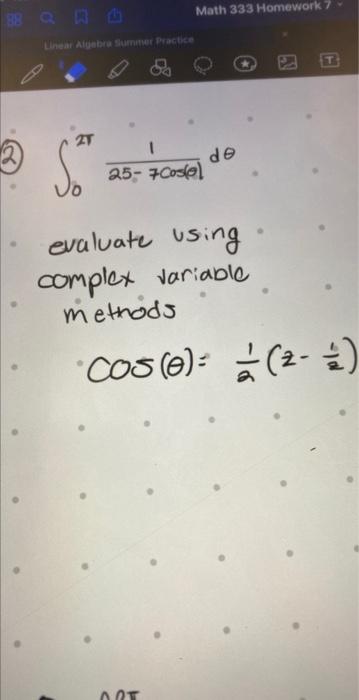 Math 333 Homework 7
Linear Algebra Summer Practice
T
2) ∫₀^2π 1/(25-7cos(θ)) dθ
evaluate using
complex variable
methods
cos(θ)= 1/2 (z - 1/z)